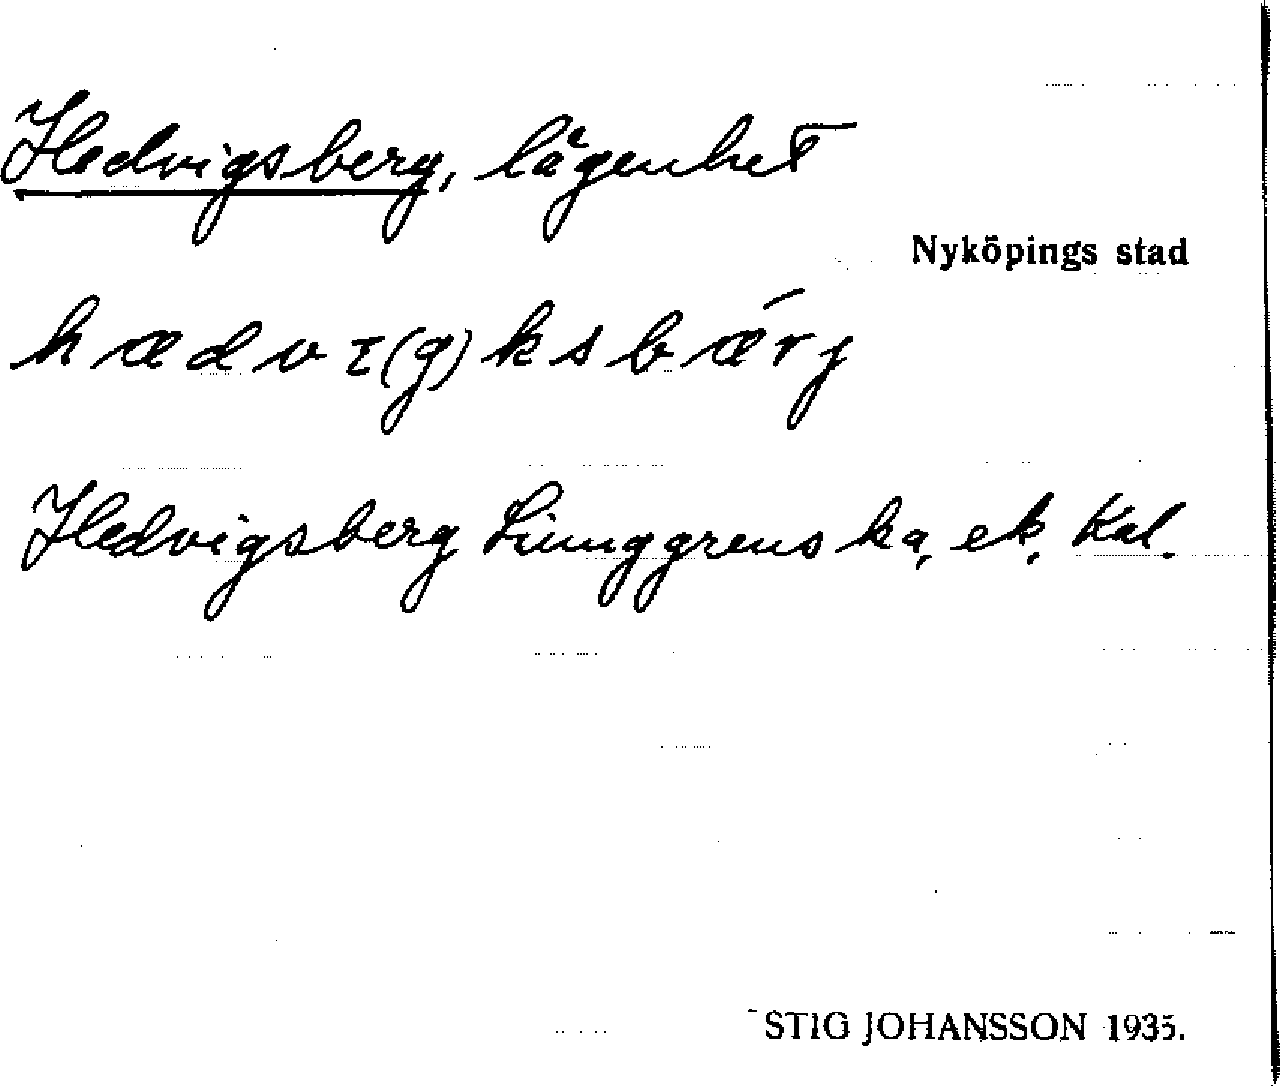 Hedvigsberg, lägenhet
Nyköpings stad
hædvɪ(g)ksbǽrj
Hedvigsberg Liunggrenska, ek. Kal.
STIG JOHANSSON 1935.